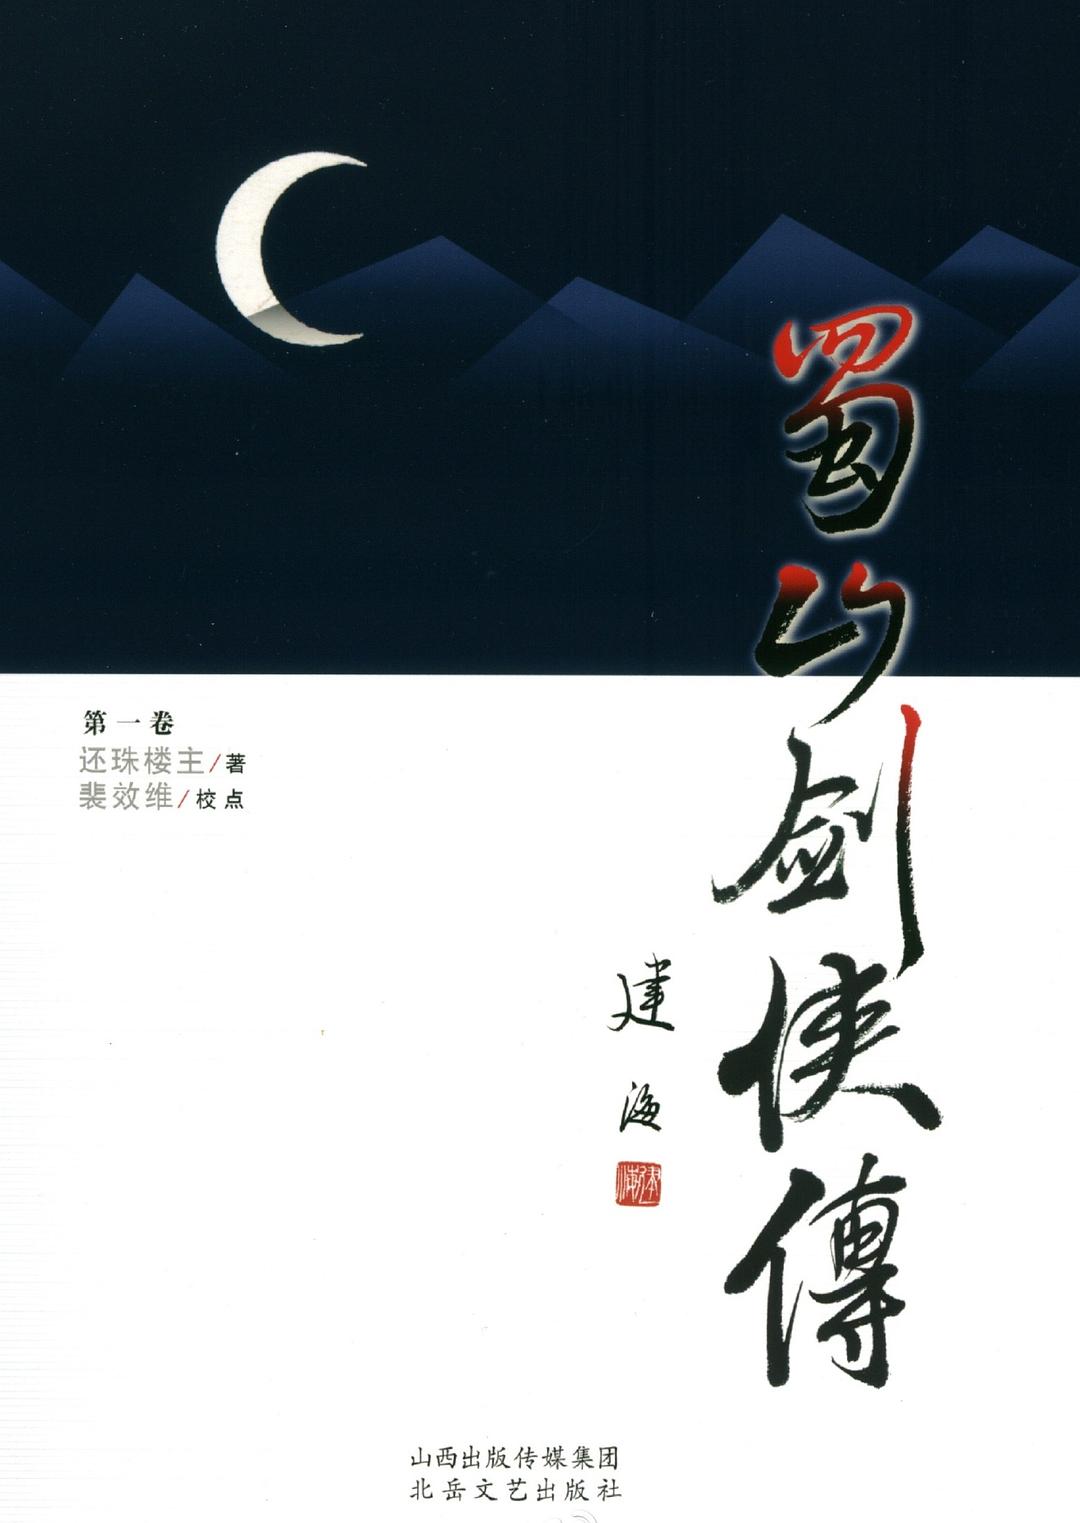 蜀山剑侠傳
第一卷
还珠楼主/著
裴效维/校点
建海
建海
山西出版传媒集团
北岳文艺出版社